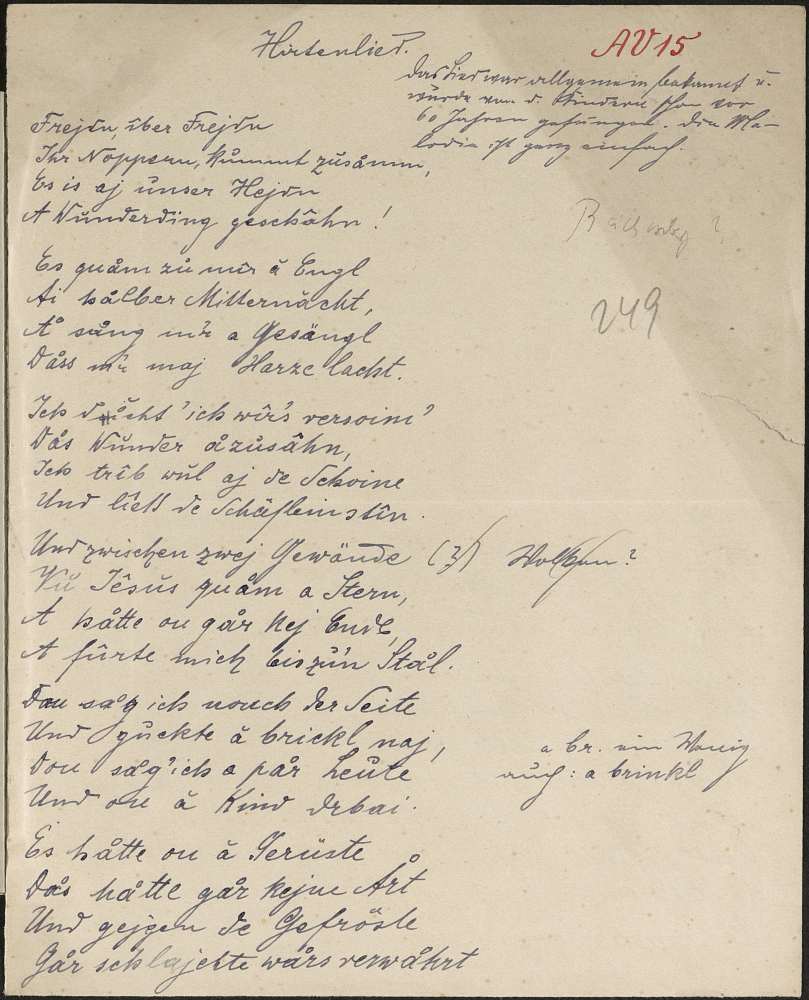 Hirtenlied.
AV 15
Das Lied war allgemein bekannt u.
wurde von d. Kindern schon vor
60 Jahren gesungen. Die Me-
lodie ist ganz einfach.
Frejdn, über Frejdn
Ihr Noppern, kummt zusåmm,
Es is aj unser Hejdn
A Wunderding geschåhn!
249
Es quåm zu mir å Engl
Ai hålber Mitternåcht,
Å sång mir a Gesängl
Dåss mir maj Harze lacht.
Ich dåcht' ich wîr's versoim'
Dås Wunder åzusåhn,
Ich trîb wul aj de Schoine
Und ließ de Schäflein stîn.
Und zwischen zwej Gewände (?) Wolken?
Vu Jêsus quåm a Stern,
A håtte ou går kej Ende,
A fûrte mich bis zu'n Stål.
Dou såg ich nouch der Seite
Und guckte å brickl naj,
Dou såg' ich a pår Leute
Und ou å Kind drbai.
a br. ein Wenig
auch: a brinkl
Es håtte ou å Gerüste
Dås håtte går kejne Årt
Und gejgen de Gefröste
Går schlajchte wårs verwåhrt